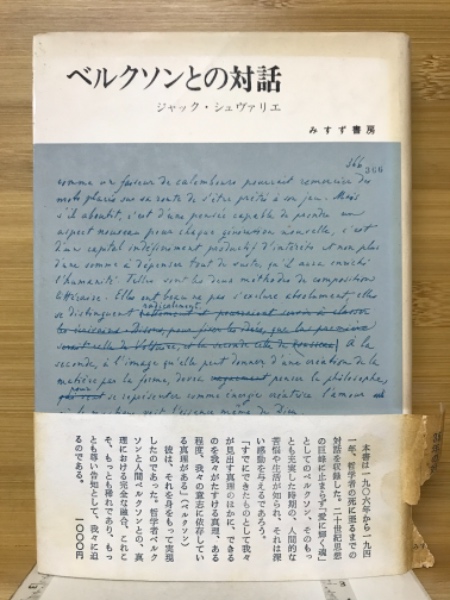 ベルクソンとの対話
ジャック・シュヴァリエ
みすず書房
366
366
comme un faiseur de calembours pourrait remercier des
mots placés sur sa route de s'être prêtés à son jeu. Mais
s'il aboutit, c'est d'une pensée capable de prendre un
aspect nouveau pour chaque génération nouvelle, c'est
d'un capital indéfiniment productif d'intérêts et non plus
d'une somme à dépenser tout de suite, qu'il aura enrichi
l'humanité. Telles sont les deux méthodes de composition
littéraire. Elles ont beau ne pas s'exclure absolument, elles
se distinguent radicalement
A la
seconde, à l'image qu'elle peut donner d'une création de la
matière par la forme, devra penser le philosophe,
pour se représenter comme énergie créatrice l'amour
l'essence même de Dieu
本書は一九〇六年から一九四
一年、哲学者の死に至るまでの
対話を収録した。二十世紀思想
の巨峰に止まらず「愛に輝く魂」
としてのベルクソン、そのもっ
とも充実した時期の、人間的な
苦悩や生活が知られ、それは深
い感動を与えるであろう。
「すでにできたものとして我々
が見出す真理のほかに、できる
のを我々がたすける真理、ある
程度、我々の意志に依存してい
る真理がある」(ベルクソン)
彼は、それを身をもって実現
したのであった。哲学者ベルク
ソンと人間ベルクソンとの、真
理における完全な融合、これこ
そ、もっとも稀れであり、もっ
とも尊い告知として、我々に迫
るのである。
1000円